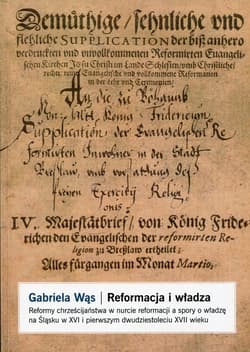 Demüthige / sehnliche vnd
flehliche SUPPLICATION der biß anhero
verdruckten vnd vnvollkommenen Reformirten Evangeli-
schen Kirchen JEsu Christi im Lande Schlesien / vmb Christliche /
rechte, Evangelische vnd vollkommene Reformation
in der Lehr vnd Ceremonien.
An die zu Böhaimb
König Fridericum
Supplication der Evangelischen Re-
formirten Inwohner in der Stadt
Breßlaw, vmb verstattung deß
freyen Exercitij Relig
onis
IV. Majestätbrief / von König Fride-
richen den Evangelischen der reformirten Re-
ligion zu Breßlaw ertheilet
Alles fürgangen im Monat Martio
Gabriela Wąs | Reformacja i władza
Reformy chrześcijaństwa w nurcie reformacji a spory o władzę
na Śląsku w XVI i pierwszym dwudziestoleciu XVII wieku